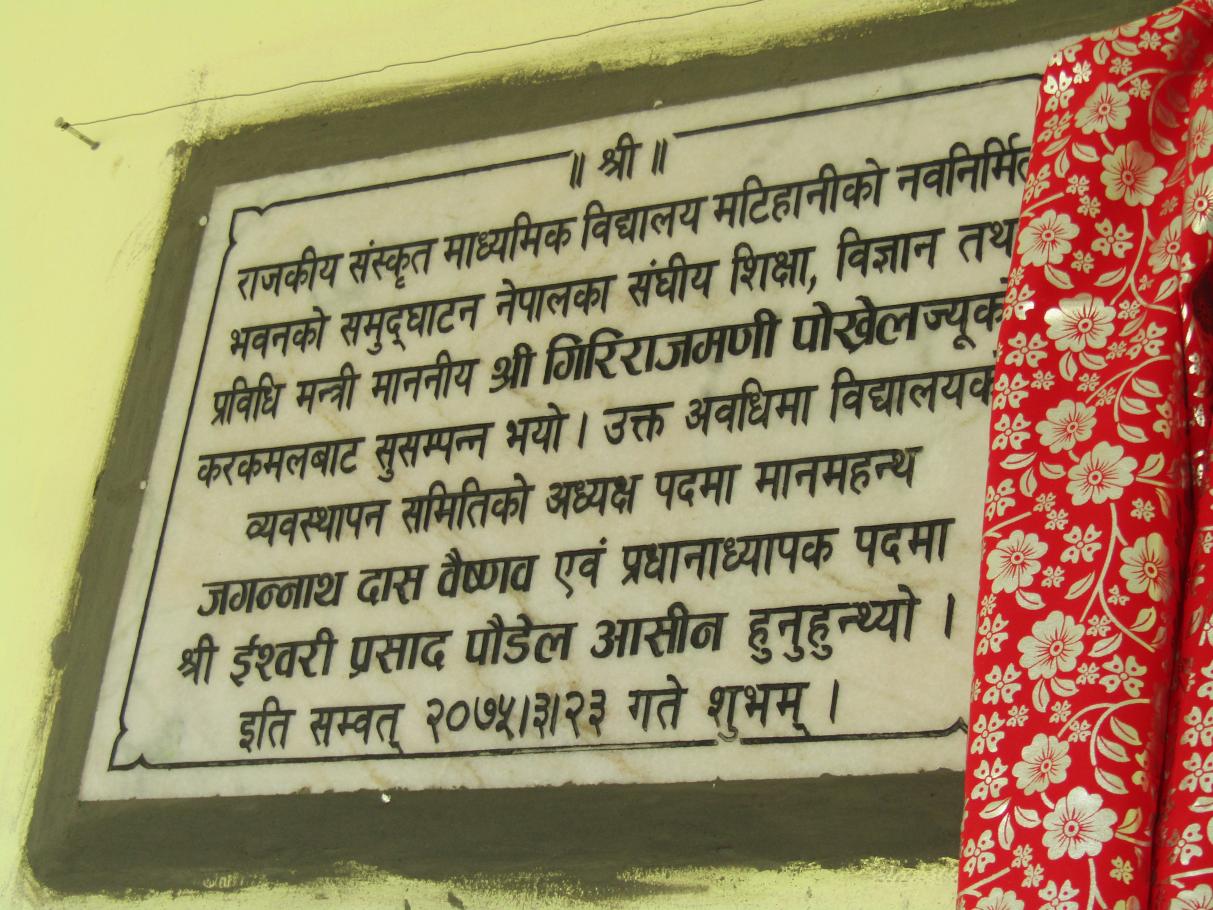 ॥ श्री ॥
राजकीय संस्कृत माध्यमिक विद्यालय मटिहानीको नवनिर्मित
भवनको समुद्घाटन नेपालका संघीय शिक्षा, विज्ञान तथ
प्रविधि मन्त्री माननीय श्री गिरिराजमणी पोखेलज्यूको
करकमलबाट सुसम्पन्न भयो । उक्त अवधिमा विद्यालयको
व्यवस्थापन समितिको अध्यक्ष पदमा मानमहन्थ
जगन्नाथ दास वैष्णव एवं प्रधानाध्यापक पदमा
श्री ईश्वरी प्रसाद पौडेल आसीन हुनुहुन्थ्यो ।
इति सम्वत् २०७५।३।२३ गते शुभम् ।